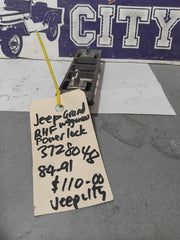 CITY
Jeep Grand
RHF wagoneer
Power lock
37280 Ug
84-91
$110-00
Jeep City